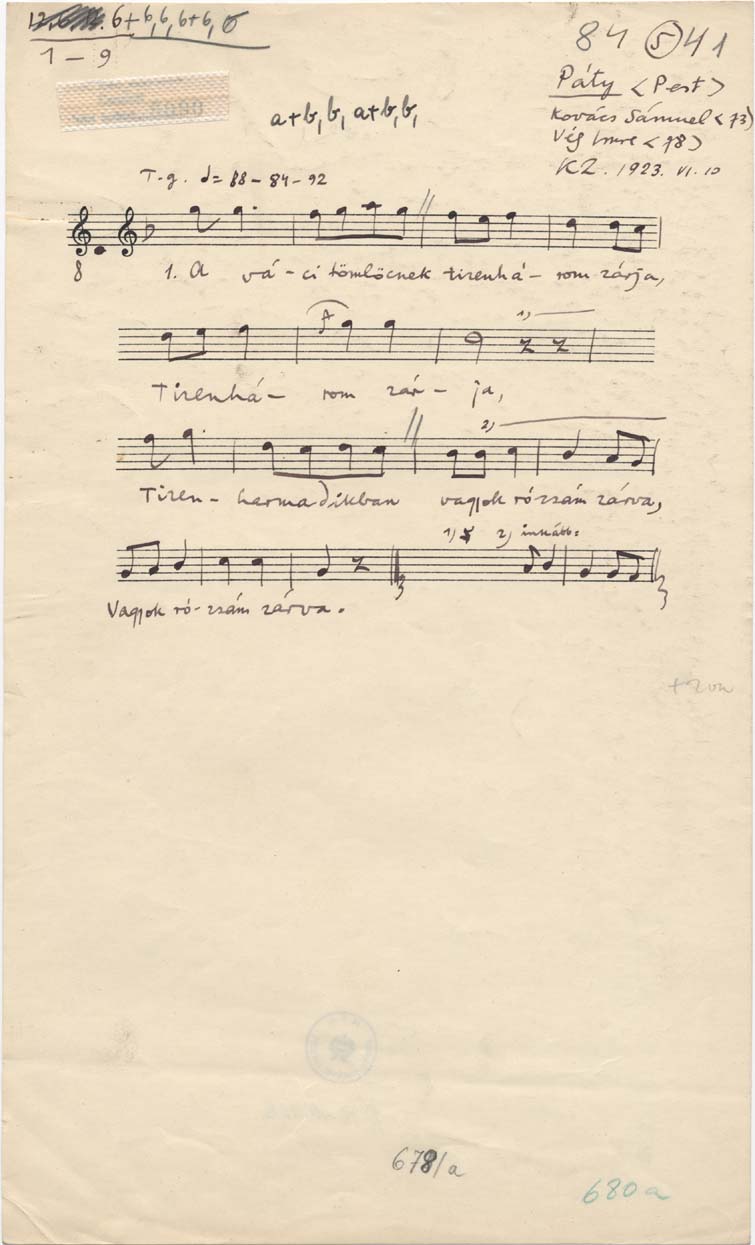 6+6,6,6+6,6
1 – 9
84 (5) 41
Páty <Pest>
Kovács Sámuel <73>
Vég Imre <78>
KZ. 1923. VI. 10
a+b, b, a+b, b,
T.g. = 88 – 84 – 92
8 1. A vá-ci tömlöcnek tizenhá-rom zárja,
1)
Tizenhá- rom zár- ja,
2)
Tizen-harmadikban vagyok rózsám zárva,
1) 2) inkább:
Vagyok ró-zsám zárva.
678/a
680a